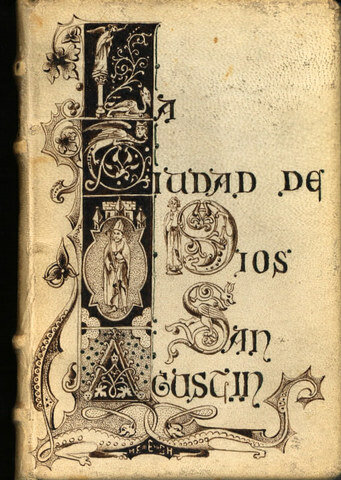 La
Ciudad de
Dios
San
Agustin